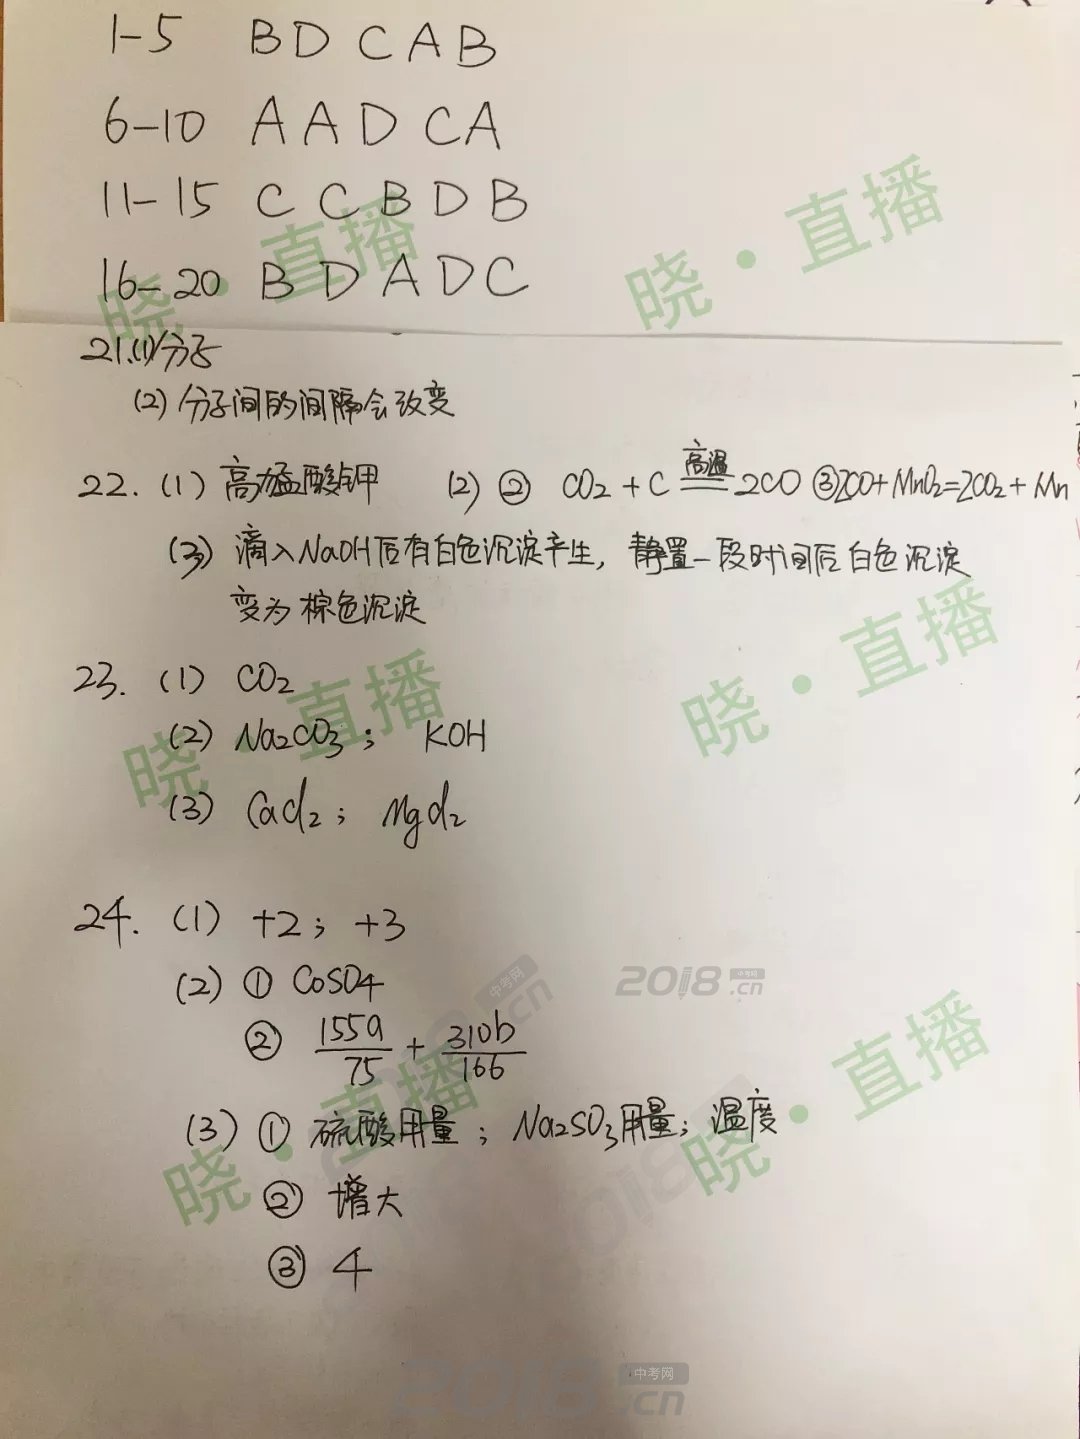 1-5 BDCAB
6-10 AADCA
11-15 CCBDB
16-20 BDADC
21.(1)分子
(2)分子间的间隔会改变
22.(1)高锰酸钾 (2)② CO₂+C 高温 2CO ③2CO+MnO₂=2CO₂+Mn
(3)滴入NaOH后有白色沉淀产生,静置一段时间后白色沉淀
变为棕色沉淀
23.(1) CO₂
(2) Na₂CO₃; KOH
(3) CaCl₂; MgCl₂
24.(1) +2; +3
(2)① CoSO4
② 155a/75 + 310b/166
(3)① 硫酸用量; Na₂SO₃用量; 温度
② 增大
③ 4
晓·直播
晓·直播
晓·直播
晓·直播
晓·直播
晓·直播
中考网
2018.cn
中考网
2018.cn
中考网
2018.cn